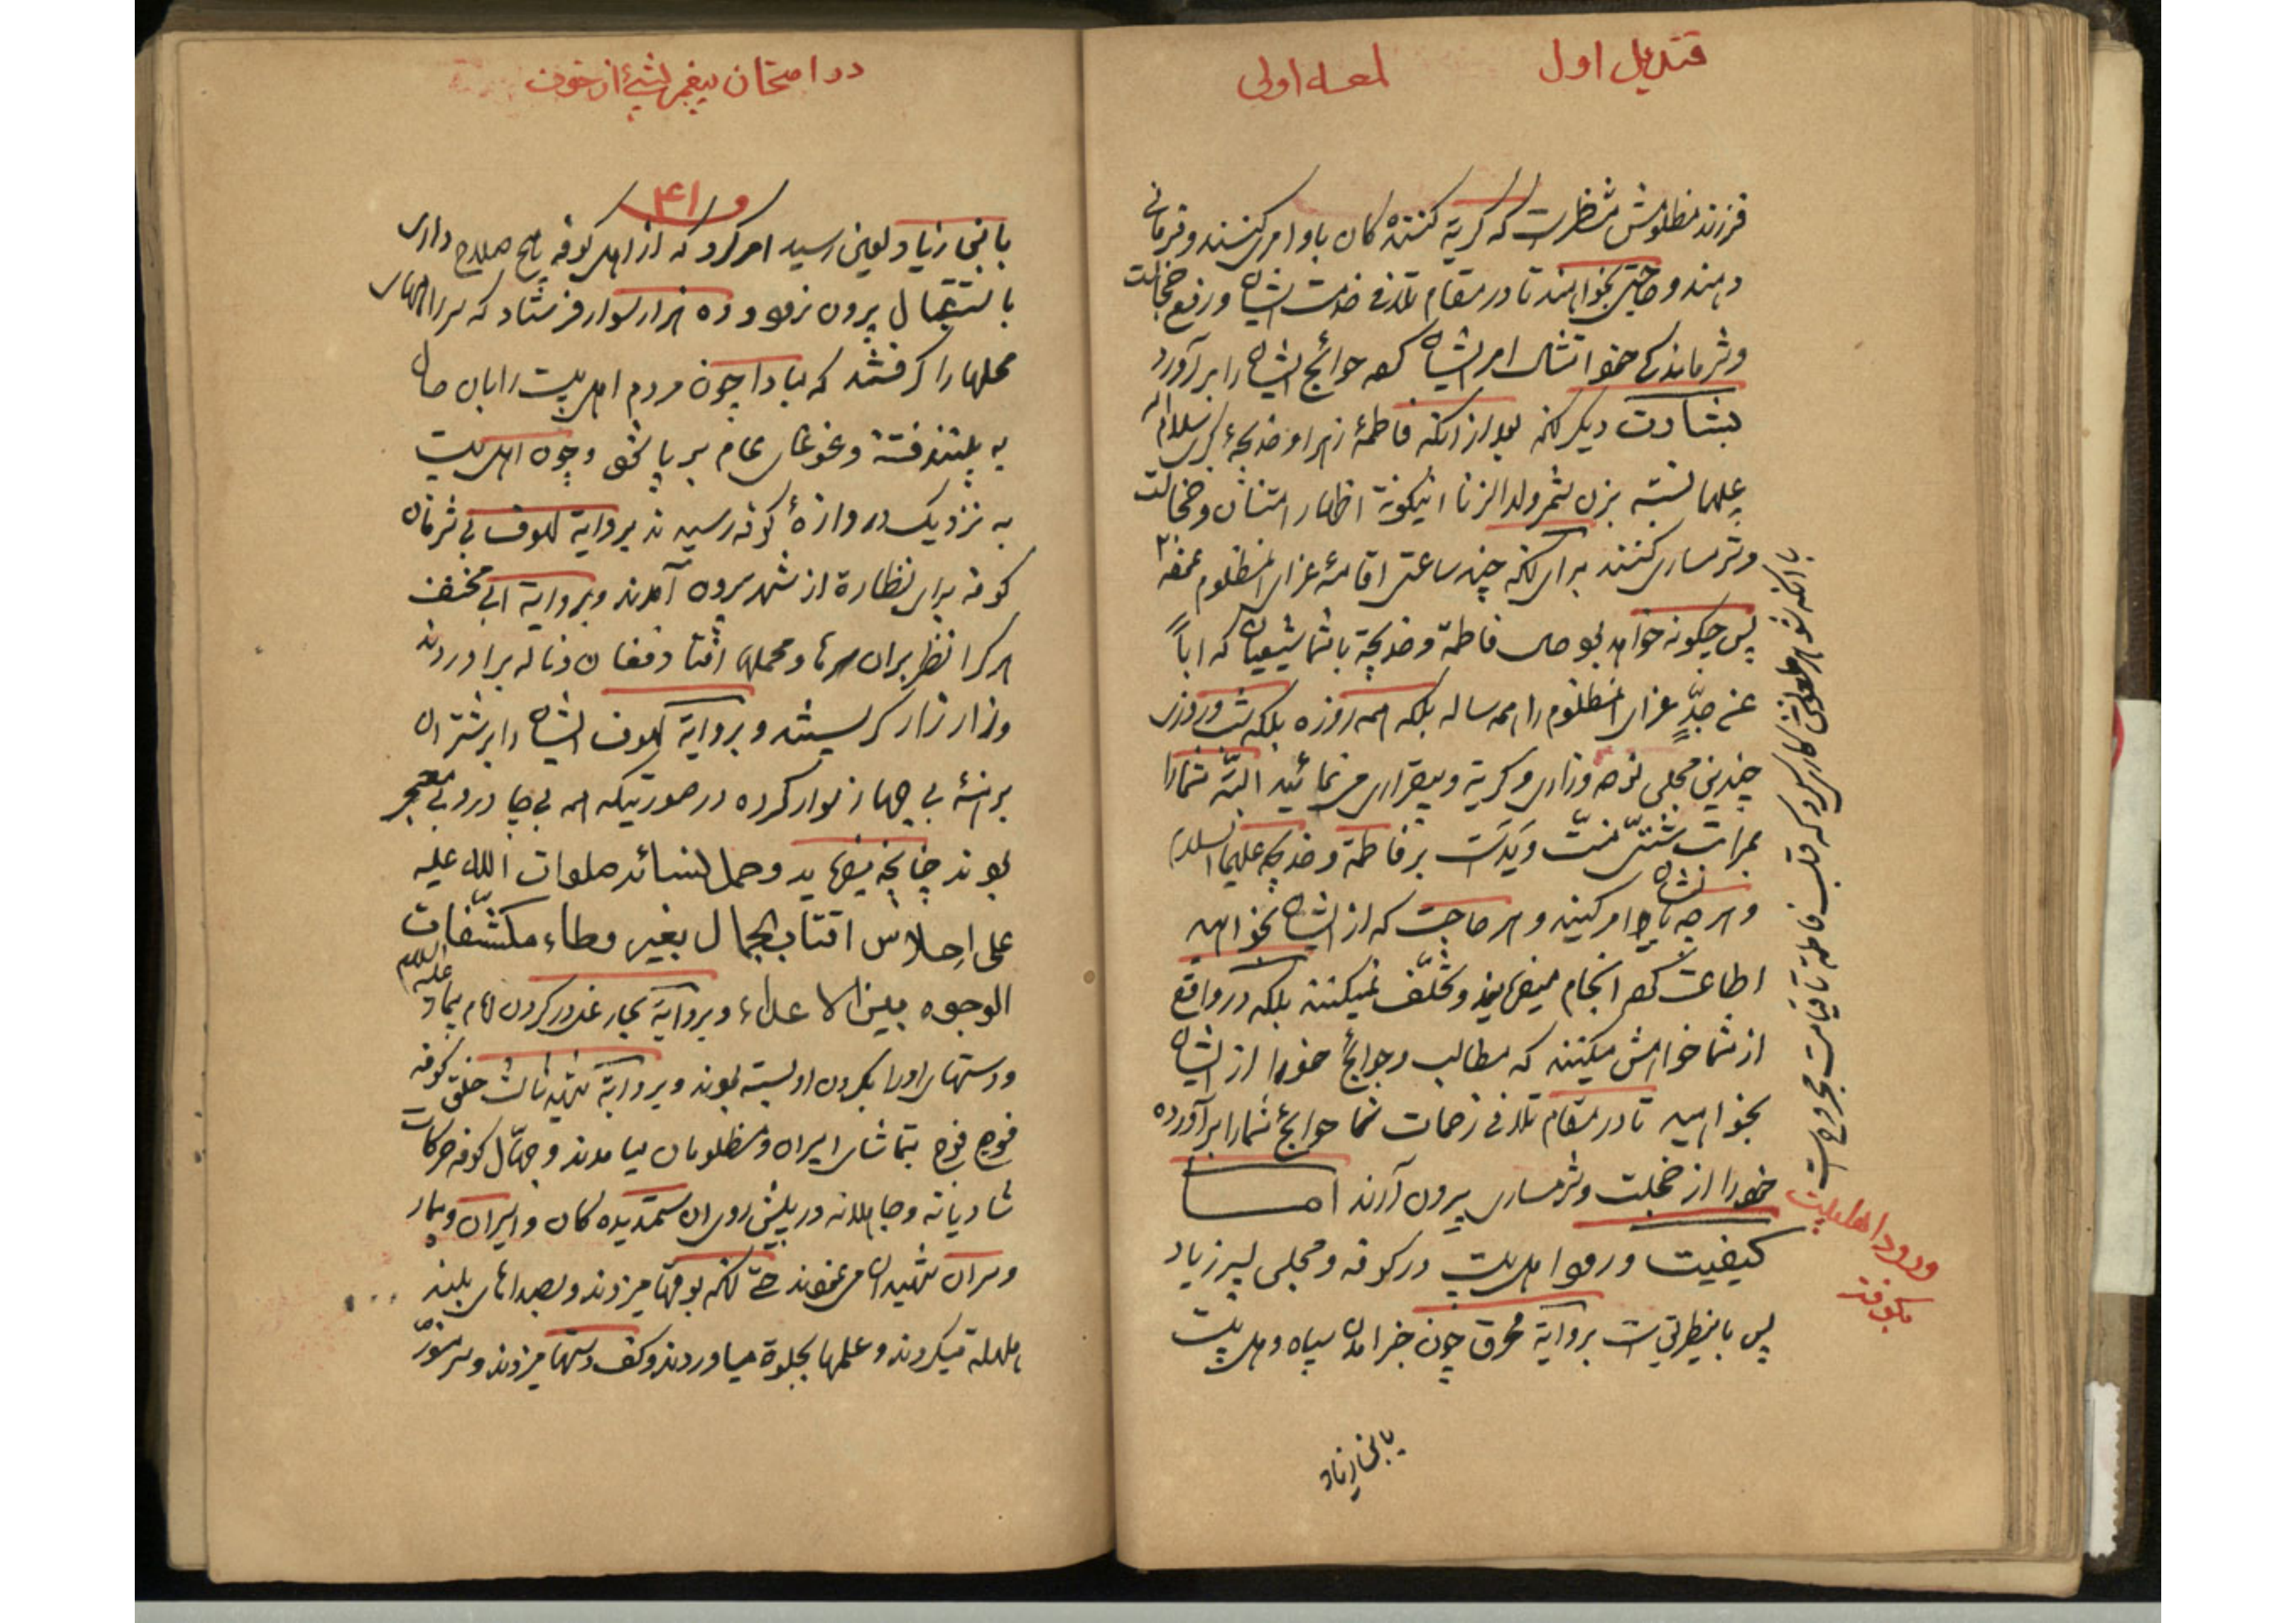 قندیل اول
لمعه اولی
فرزند مظلومش منتظرست که گریه کننده کان باو امری کنند و فرمانی
دهند و حاجتی بخواهند تا در مقام تلافی خدمت ایشان و رفع خجالت
و شرماندکی خود امتثال امر ایشان کرده حوائج ایشان را برآورد
بشارت دیگر آنکه بعد از آنکه فاطمهٔ زهرا و خدیجهٔ کبری سلام الله
علیهما نسبة بزن شمر ولد الزنا اینگونه اظهار امتنان و خجالت
و شرمساری کنند برای آنکه چند ساعتی اقامهٔ عزای آنمظلوم نموده
پس چگونه خواهد بود حال فاطمة و خدیجة با شما شیعیان که اباً
عن جدٍّ عزای آنمظلوم را همه ساله بلکه همه روزه بلکه شب و روزی
چندین مجلس نوحه و زاری و گریه و بیقراری می نمائید البتّه شما را
بمرات شتّی منّت و یَدَ است بر فاطمة و خدیجه علیهما السلام
و هر چه بایشان امر کنید و هر حاجت که از ایشان بخواهید
اطاعت کرده انجام میفرمایند و تخلّف نمیکنند بلکه در واقع
از شما خواهش میکنند که مطالب و حوائج خود را از ایشان
بخواهید تا در مقام تلافی زحمات شما حوائج شما را برآورده
خود را از خجلت و شرمساری بیرون آرند اما
کیفیت ورود اهل بیت در کوفه و مجلس پسر زیاد
پس باینطریق است بروایة محرق چون خبر آمدن سپاه و اهل بیت
بابن زیاد
با آنکه شوهر ملعونش کاری کرد که قلب فاطمة تا قیامت مجروح است
ورود اهلبیت
بکوفه
در امتحان پیغمبر بشیئ از خوف
و ۴۱
بابن زیاد لعین رسید امر کرد که از اهل کوفه هیچ صلاح داری
باستقبال بیرون نرود و ده هزار سوار فرستاد که سر راههای
محلها را گرفتند که مبادا چون مردم اهل بیت را بان حال
به بینند فتنه و غوغای عام برپا شود و چون اهل بیت
به نزدیک دروازهٔ کوفه رسیدند بروایة لهوف بی شرمان
کوفه برای نظاره از شهر بیرون آمدند و بروایة ابی مخنف
هر کرا نظر بران سرها و محملها افتاد فغان و ناله برآوردند
و زار زار گریستند و بروایة لهوف ایشان را بر شتران
برهنهٔ بی جهاز سوار کرده در صورتیکه همه بی چادر و بی معجر
بودند چنانچه میفرماید و حمل نسائه صلوات الله علیه
علی احلاس اقتاب الجمال بغیر وطاء مکشّفات
الوجوه بین الاعداء و بروایة بحار غل در گردن امام بیمار علیه السلام
و دستهای او را بگردن او بسته بودند و بروایة شهید ثالث خلق کوفه
فوج فوج بتماشای اسیران و مظلومان میامدند و جهّال کوفه حرکات
شادیانه و جاهلانه در پیش روی ان ستمدیده کان و اسیران و بیمار
و سران شهیدان می نمودند حتی آنکه بوقها میزدند و بصداهای بلند
هلهله میکردند و علمها بجلوه میاوردند و کف دستها میزدند و سر منوّر